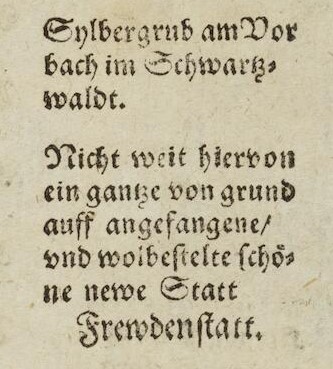 Sylbergrub am Vor
bach im Schwartz⸗
waldt.
Nicht weit hiervon
ein gantze von grund
auff angefangene/
vnd wolbestelte schö⸗
ne newe Statt
Frewdenstatt.